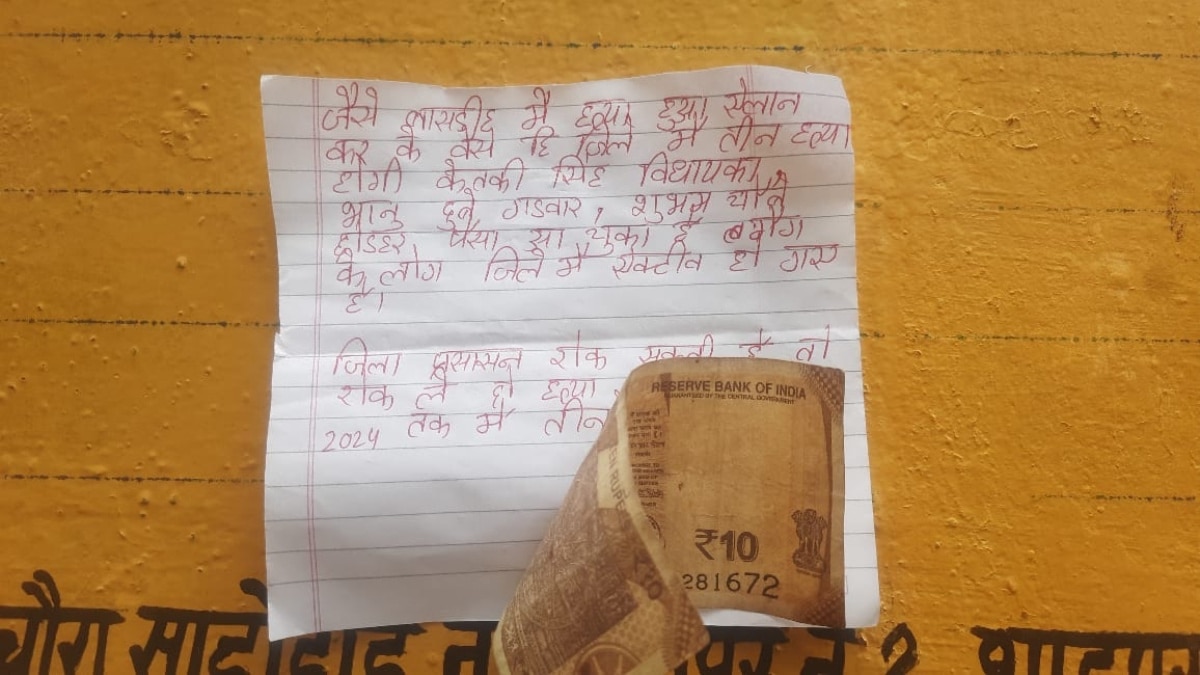 जैसे लासडीह मै हत्या हुआ ऐलान
कर के वैसे हि जिले मै तीन हत्या
होगी केतकी सिंह विधायका,
भानु दुबे गडवार, शुभम चौबे
छोडहर, पैसा आ चुका है
के लोग जिले मै ऐक्टीव हो गए
है।
जिला प्रसासन रोक सकती है तो
रोक ले हो हत्या
2024 तक मे तीन
RESERVE BANK OF INDIA
GUARANTEED BY THE CENTRAL GOVERNMENT
TEN RUPE
₹10
281672
₹10
चौग
न 2